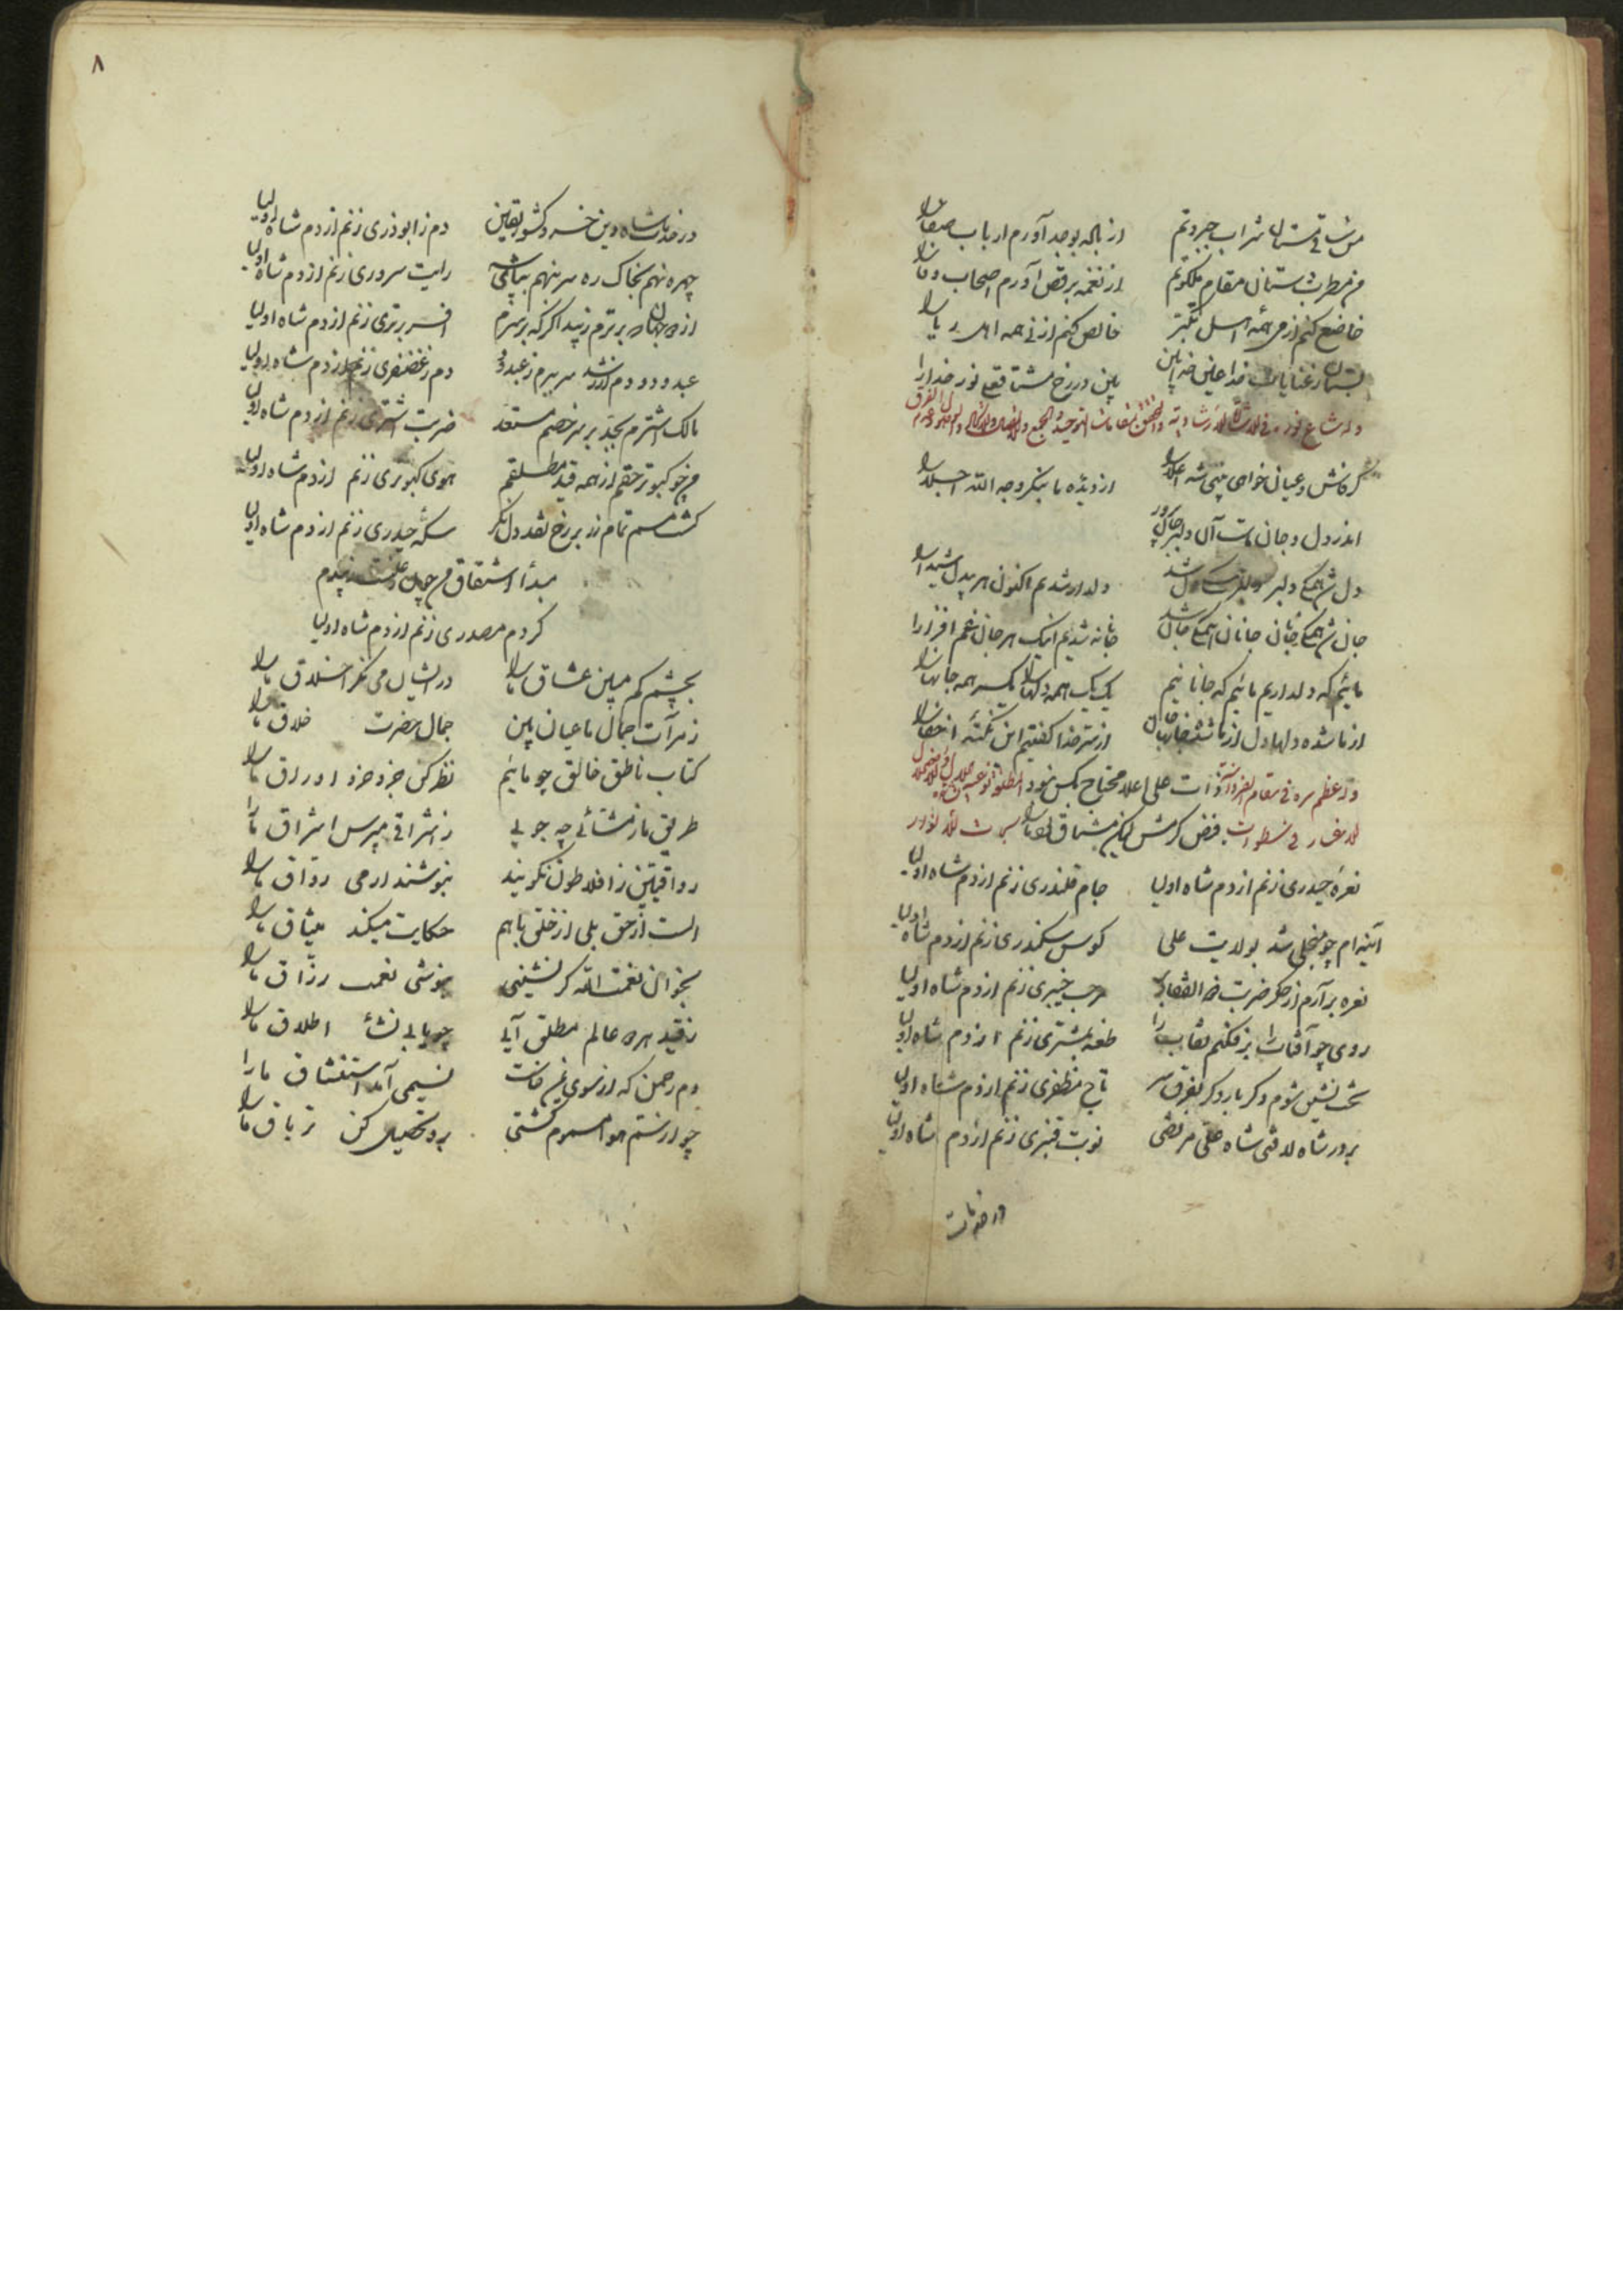 من ساقی مستان شراب جبروتم از باله بوجد آورم ارباب صفا را
من مطرب مستان مقام ملکوتم از نغمه برقص آورم اصحاب وفا را
خاضع کنم از می همه اهل تکبر خالص کنم از نی همه اهل ریا را
بین در رخ مشتاقعلی نور خدا را
گر فاش و عیان خواهی بینی شه اعلا را از دیده ما بنگر وجه الله اجلا را
اندر دل و جان ماست آن دلبر جان پرور
دل شد همگی دلبر دلدار شدیم اکنون هر بیدل شیدا را
جان شد همگی جانان جانان همگی جان شد جانانه شدیم اینک هر جان غم افزا را
مائیم که دلداریم مائیم که جانانیم یک یک همه دلها را یکسر همه جانها را
از ما شده دلها دل از ما شده جانها جان از سر خدا گفتیم این نکته اخفا را
ذات علی اعلا محتاج بکس نبود
فرض کرمش لیکن مشتاق
نعره حیدری زنم از دم شاه اولیا جام قلندری زنم از دم شاه اولیا
آینه ام چو منجلی شد بولایت علی کوس سکندری زنم از دم شاه اولیا
نعره برآرم از جگر ضربت ذوالفقار مرحب خیبری زنم از دم شاه اولیا
روی چو آفتاب را برفکنم نقاب را طعنه بمشتری زنم از دم شاه اولیا
تخت نشین شوم دگر بار دگر بفرق سر تاج مظفری زنم از دم شاه اولیا
بر در شاه لافتی شاه علی مرتضی نوبت قنبری زنم از دم شاه اولیا
۸
در خدمت شاه دین خسرو کشور یقین دم ز ابوذری زنم از دم شاه اولیا
چهره نهم بخاک ره سر بنهم بپای شه رایت سروری زنم از دم شاه اولیا
از همگان برترم زیبد اگر که بر سرم افسر برتری زنم از دم شاه اولیا
عبدودود دم دم ز غضنفری زنم از دم شاه اولیا
مالک اشترم بجد بر سر خصم مستعد ضربت اشتری زنم از دم شاه اولیا
من چو کبوتر حقم از همه قید مطلقم هوی کبوتری زنم از دم شاه اولیا
گشت مسم تمام زر بر رخ نقد دل نگر سکه حیدری زنم از دم شاه اولیا
مبدأ اشتقاق من چون
گر دم مصدری زنم از دم شاه اولیا
بچشم کم مبین عشاق ما را در ایشان می نگر اخلاق ما را
ز مرآت جمال ما عیان بین جمال حضرت خلاق ما را
کتاب ناطق خالق چو مائیم نظر کن جزو جزو اوراق ما را
طریق ما ز مشائی چه جویی ز اشراقی مپرس اشراق ما را
رواقیین ز افلاطون نگویند بنوشند ار می رواق ما را
الست از حق بلی از خلق با هم حکایت میکند میثاق ما را
بخوان نعمت الله گر نشینی بنوشی نعمت رزاق ما را
ز قید هر دو عالم مطلق آیی چو یابی نشأ اطلاق ما را
دم رحمن که از سوی یمن خاست نسیمی آمد استنشاق ما را
چو از سم هوا مسموم گشتی برو تحصیل کن تریاق ما را